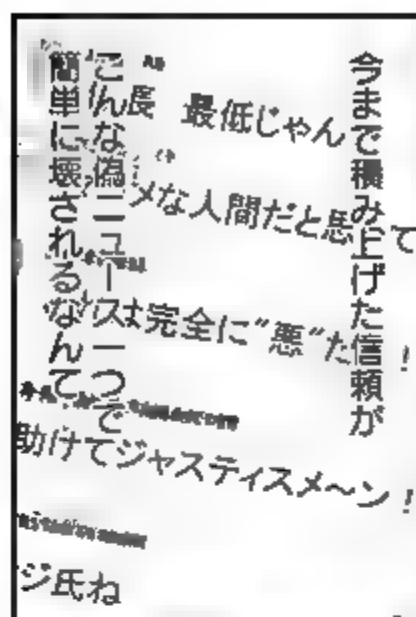 今まで積み上げた信頼が
こんな偽ニュース一つで
簡単に壊されるなんて
長 最低じゃん
メな人間だと思 て
は完全に"悪"だ !
助けてジャスティスメ～ン!
ジ氏ね